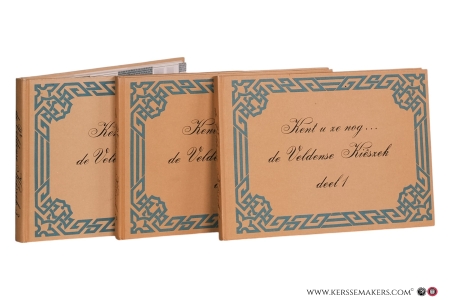 Ken
de Velde
Ken
de Velde
Kent u ze nog...
de Veldense Kièszek
deel 1
WWW.KERSSEMAKERS.COM